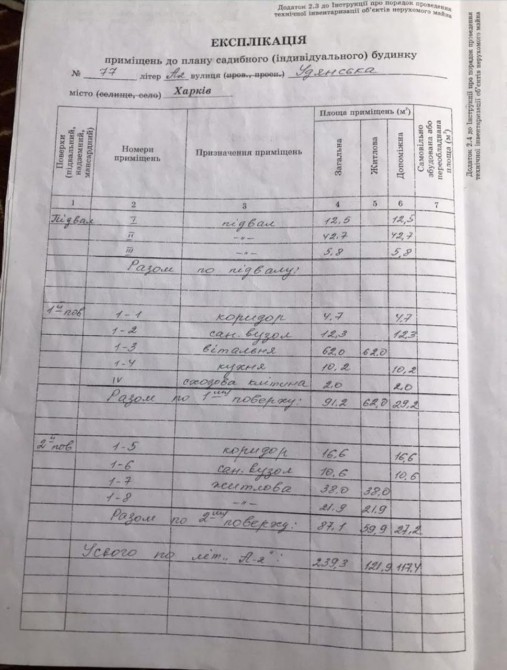 Додаток 2.3 до Інструкції про порядок проведення
технічної інвентаризації об'єктів нерухомого майна
ЕКСПЛІКАЦІЯ
приміщень до плану садибного (індивідуального) будинку
№ 77 літер А2 вулиця (пров., просп.)
місто (селище, село) Харків
Поверхи (підвальний, надземний, мансардний)
Номери приміщень
Призначення приміщень
Площа приміщень (м²)
Загальна
Житлова
Допоміжна
Самовільно збудована або переобладнана площа (м²)
1 2 3 4 5 6 7
Підвал I підвал 12,5 12,5
II -"- 42,7 42,7
III -"- 5,8 5,8
Разом по підвалу:
1й пов 1-1 коридор 4,7 4,7
1-2 сан. вузол 12,3 12,3
1-3 вітальня 62,0 62,0
1-4 кухня 10,2 10,2
IV сходова клітина 2,0 2,0
Разом по 1му поверху: 91,2 62,0 29,2
2й пов 1-5 коридор 16,6 16,6
1-6 сан. вузол 10,6 10,6
1-7 житлова 38,0 38,0
1-8 -"- 21,9 21,9
Разом по 2му поверху: 87,1 59,9 27,2
Усього по літ. "А-2": 239,3 121,9 117,4
Додаток 2.4 до Інструкції про порядок проведення
технічної інвентаризації об'єктів нерухомого майна